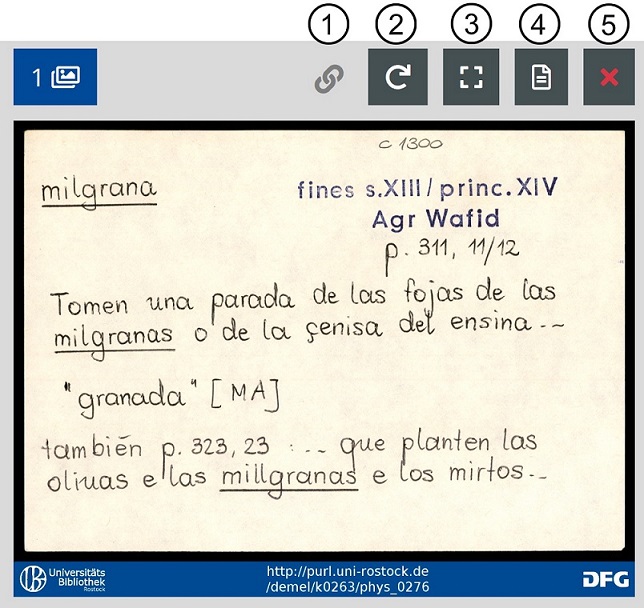 1 2 3 4 5
1
c 1300
milgrana
fines s.XIII / princ. XIV
Agr Wafid
p. 311, 11/12
Tomen una parada de las fojas de las
milgranas o de la çenisa del ensina ---
"granada" [MA]
también p. 323, 23 : --- que planten las
oliuas e las millgranas e los mirtos---
Universitäts
Bibliothek
Rostock
http://purl.uni-rostock.de
/demel/k0263/phys_0276
DFG